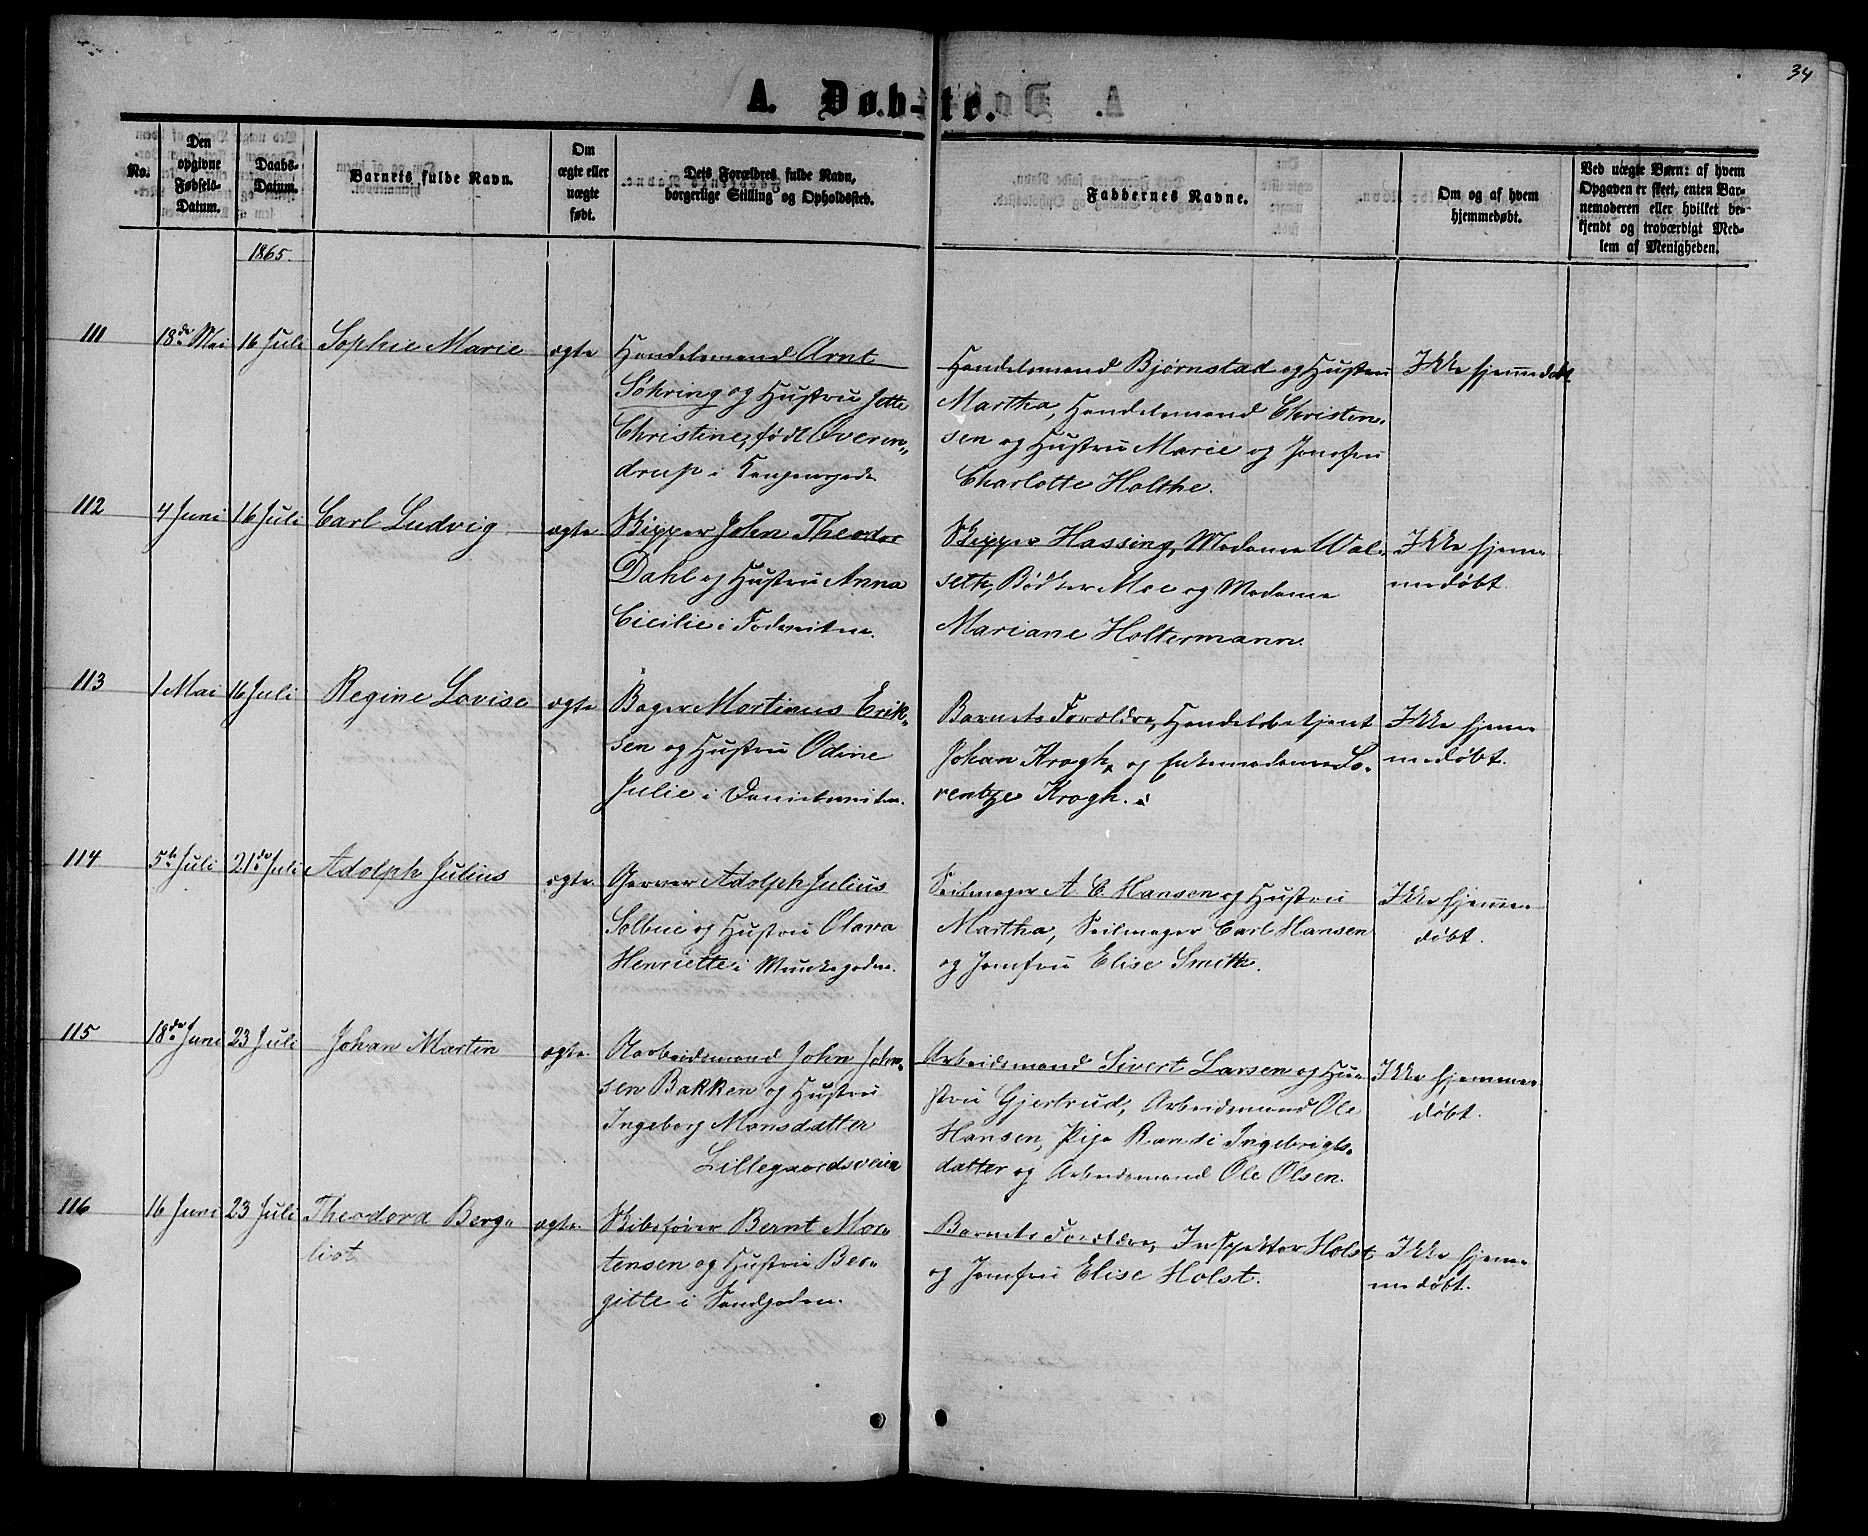 34
A. Døb-te.
No.
Den
opgivne
Fødsels-
Datum.
Daabs-
Datum.
Barnets fulde Navn.
Om
ægte eller
uægte
født.
Dets Forældres fulde Navn,
borgerlige Stilling og Opholdssted.
Faddernes Navne.
Om og af hvem
hjemmedøbt.
Ved uægte Børn: af hvem
Opgaven er skeet, enten Bar-
nemoderen eller hvilket be-
kjendt og troværdigt Med-
lem af Menigheden.
1865.
111
18de Mai
16 Juli
Sophie Marie
ægte
Handelsmand Arnt
Søhring og Hustru Jette
Christine, født Overen-
drup i
Handelsmand Bjørnstad og Hustru
Martha, Handelsmand Christen-
sen og Hustru Marie og Jomfru
Charlotte Holthe.
Ikke hjemmedøbt
112
4 Juni
16 Juli
Carl Ludvig
ægte
Skipper John Theodor
Dahl og Hustru Anna
Cicilie i
Skipper Hassing, Madame Wal-
seth, Bødker Moe og Madame
Mariane Holtermann.
Ikke hjem-
medøbt.
113
1 Mai
16 Juli
Regine Lovise
ægte
Bager Martinus Erik-
sen og Hustru Odine
Julie i Danielsveiten.
Barnets Forældre, Handelsbetjent
Johan Krogh, og Enkemadame Lo-
rentze Krogh.
Ikke hjem-
medøbt.
114
5te Juli
21de Juli
Adolph Julius
ægte
Garver Adolph Julius
Solbue og Hustru Olava
Henriette i Munkegaden.
Seilmager A. C. Hansen og Hustru
Martha, Seilmager Carl Hansen
og Jomfru Elise Smith.
Ikke hjemme-
døbt.
115
18de Juni
23 Juli
Johan Martin
ægte
Aarbeidsmand John John-
sen Bakken og Hustru
Ingeborg Monsdatter
Lillegaardsveien
Arbeidsmand Sivert Larsen og Hu-
stru Gjertrud, Arbeidsmand Ole
Hansen, Pige Randi Ingebrigts-
datter og Arbeidsmand Ole Olsen.
Ikke hjemme-
døbt.
116
16 Juni
23 Juli
Theodora Berg-
liot
ægte
Skibsfører Bernt Mor-
tensen og Hustru Ber-
gitte i Sandgaden.
Barnets Forældre, Inspektor Holst
og Jomfru Elise Holst.
Ikke hjem-
medøbt.